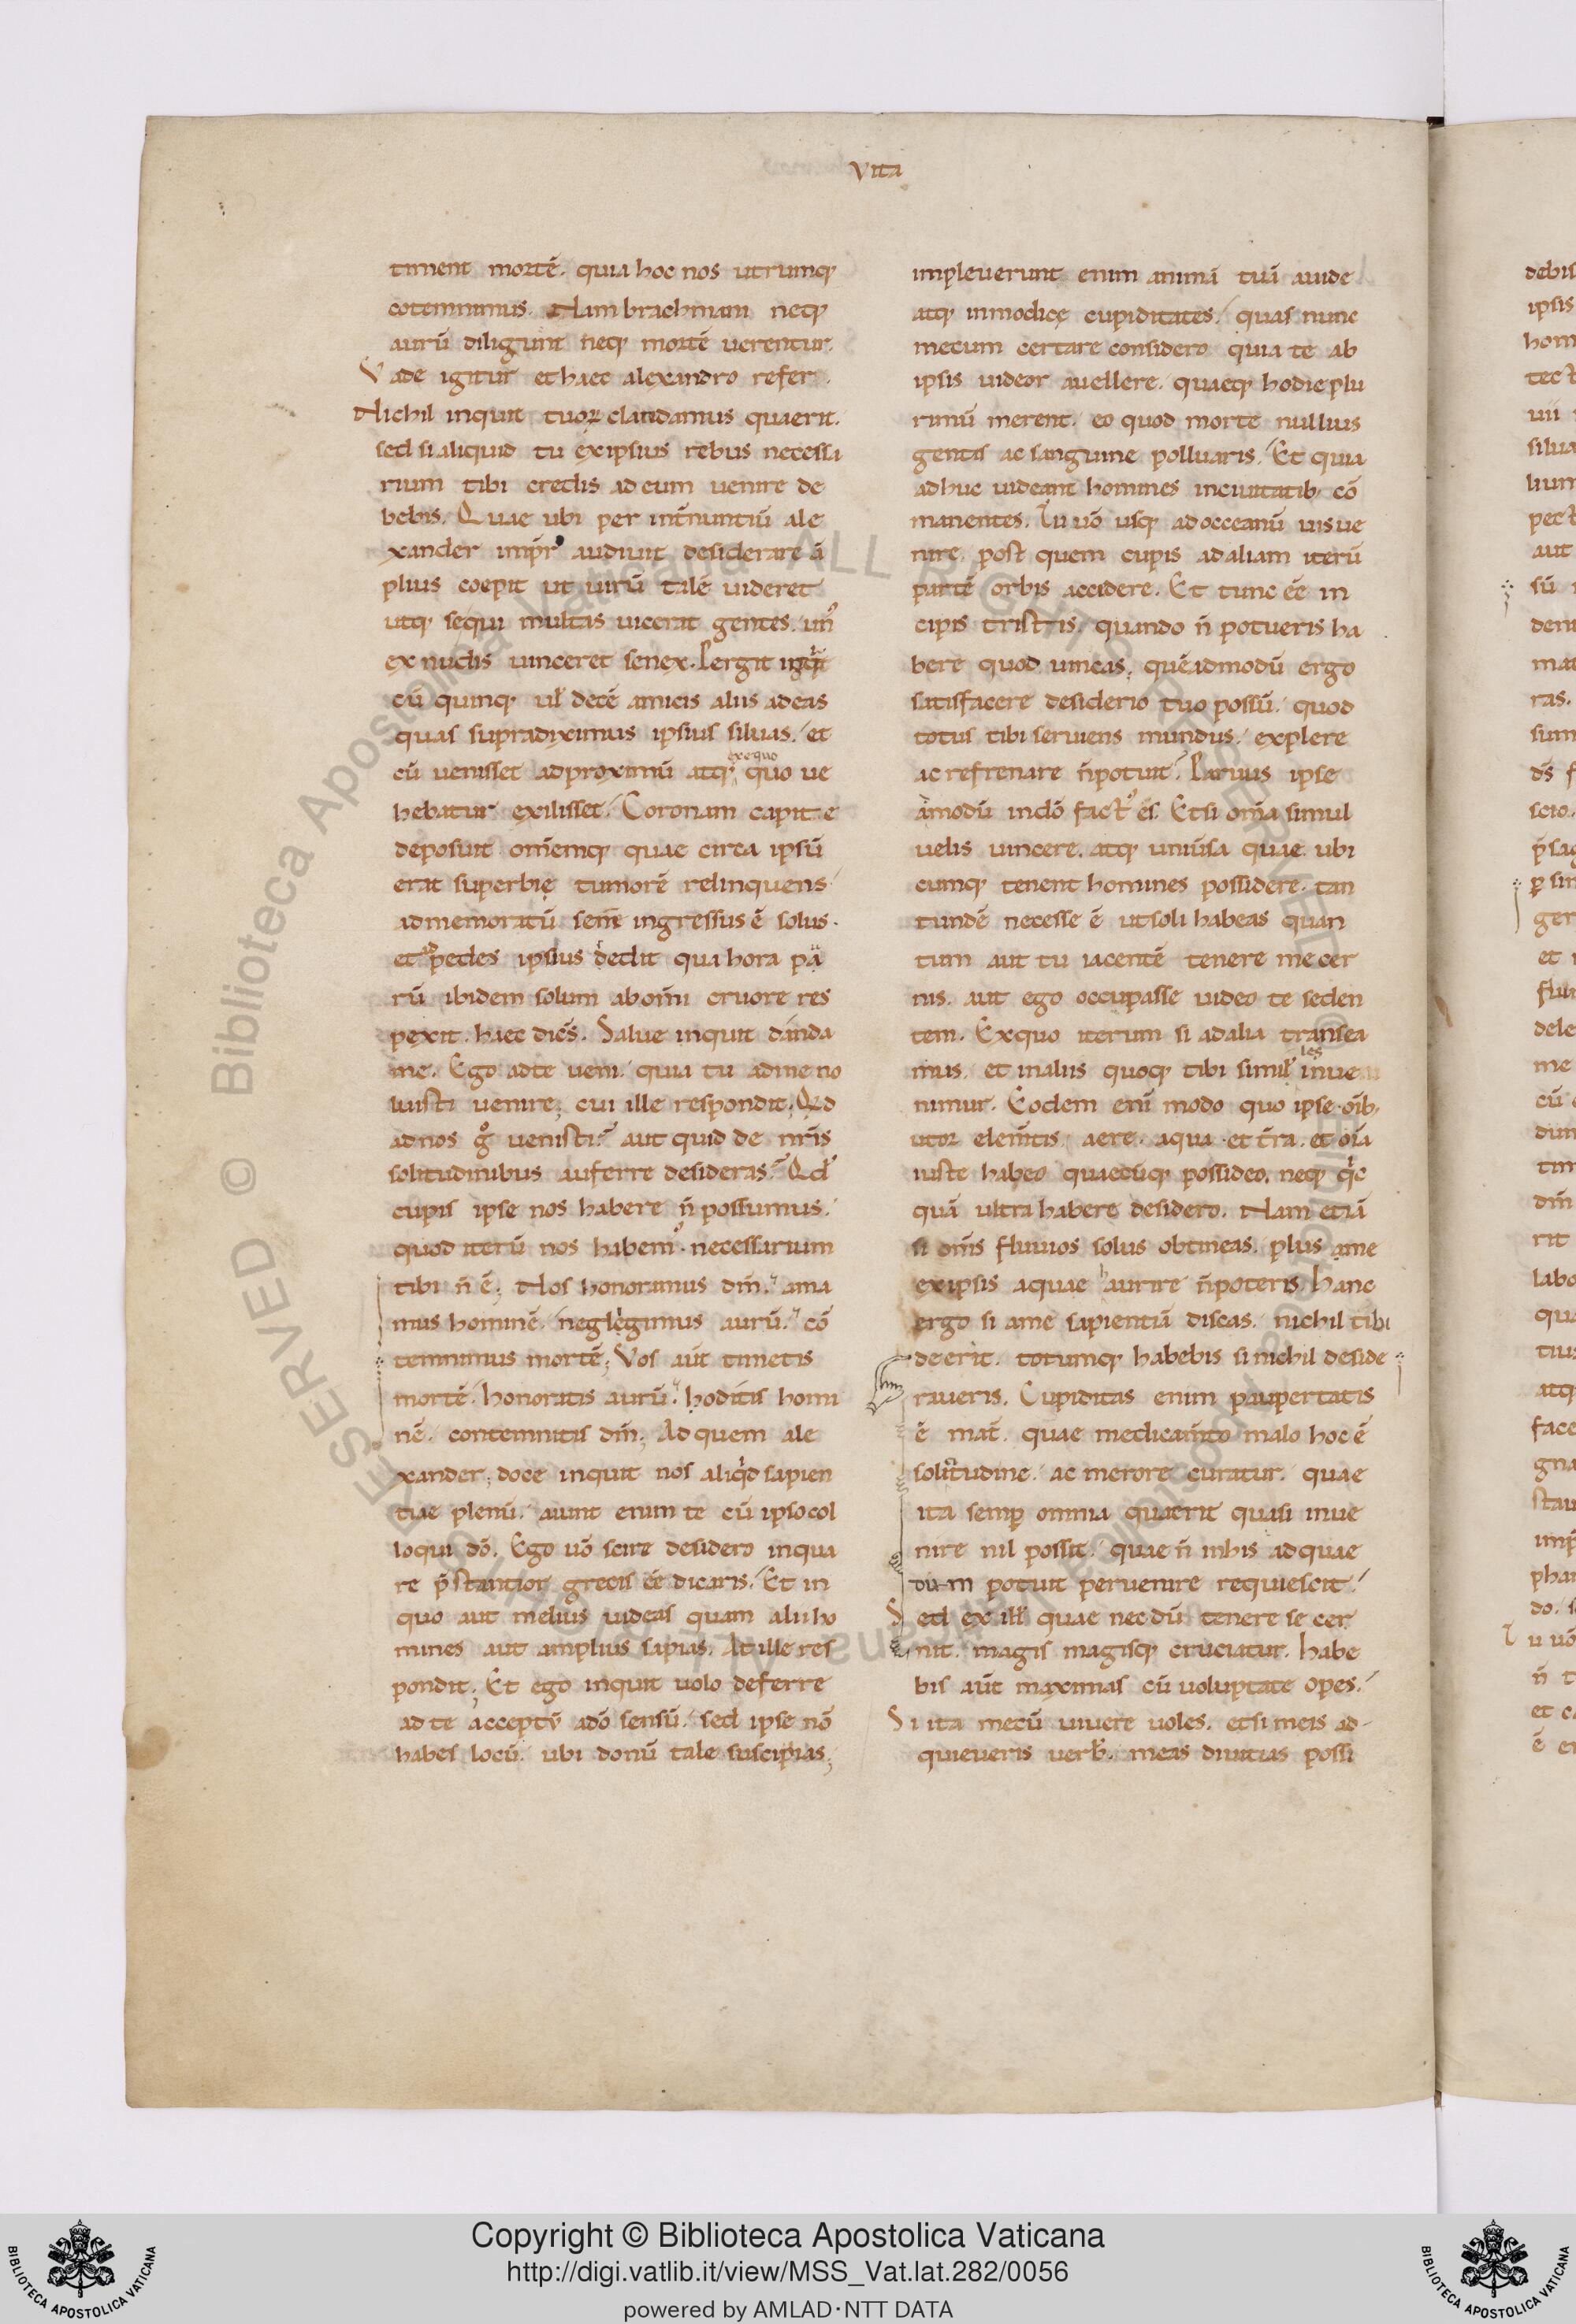 vita
timent mortē. quia hoc nos utrumq;
cotemnimus. Nam brachmani neq;
aurū diligunt neq; mortē uerentur.
Vade igitur et haec alexandro refer.
Nichil inquit tuoꝝ dandamus quaerit.
sed si aliquid tu ex ipsius rebus necessa
rium tibi credis ad eum uenire de
bebis. Quae ubi per int̄nuntiū ale
xander imp̄r audiuit desiderare ā
plius coepit ut uirū talē uideret
utq; sequi multas uicerat gentes. un̄
ex nudis uinceret senex. Pergit
cū quinq; ul decē amicis alus ad eas
quas supradiximus ipsius siluas. et
cū uenisset ad proximū atq; quo ue
exequo
hebatur exilisset. Coronam capite
deposuit om̄emq; quae circa ipsū
erat superbię tumorē relinquens
ad memoratū senē ingressus ē solus.
et pedes ipsius dedit qua hora pa
rū ibidem solum ab om̄i cruore res
pexit. haec dicēs. Salue inquit danda
me. Ego ad te ueni. quia tu ad me no
luisti uenire; cui ille respondit. Qd
ad nos gͦ uenisti? aut quid de nr̄is
solitudinibus auferre desideras? Qd
cupis ipse nos habere n̄ possumus.
quod iterū nos habem᾽. necessarium
tibi n̄ ē; Nos honoramus dm̄. ama
mus hominē. neglegimus aurū. cō
temnimus mortē; Vos aūt timetis
mortē. honoratis aurū. hoditis homi
nē. contemnitis dm̄; Ad quem ale
xander; doce inquit nos aliqd sapien
tiae plenū. aiunt enim te cū ipso col
loqui dō. Ego uō scire desidero inqua
re p̄stantior grecis eē dicaris. Et in
quo aut melius uideas quam alii ho
mines aut amplius sapias. At ille res
pondit; Et ego inquit uolo deferre
ad te acceptū a dō sensū. sed ipse nō
habes locū. ubi donū tale suscipias;
impleuerunt enim animā tuā auide
atq; inmodicę cupiditates. quas nunc
mecum certare considero quia te ab
ipsis uideor auellere. quaeq; hodie plu
rimū merent. eo quod morte nullius
gentis ac sanguine polluaris. Et quia
adhuc uideant homines in ciuitatib; cō
manentes. Tu uō usq; ad occeanū uis ue
nire. post quem cupis ad aliam iterū
partē orbis accidere. Et tunc eē in
cipis tristis. quando n̄ potueris ha
bere quod uincas; quēadmodū ergo
satisfacere desiderio tuo possū. quod
totus tibi seruiens mundus. explere
ac refrenare n̄ potuit? Paruus ipse
amodū in dō fact᾽ es. Et si om̄a simul
uelis uincere. atq; uniūsa quae ubi
cumq; tenent homines possidere. tan
tundē necesse ē ut soli habeas quan
tum aut tu iacentē tenere me cer
nis. aut ego occupasse uideo te seden
tem. Ex quo iterum si ad alia transea
mus. et in alus quoq; tibi simil inue
les
nimur. Eodem eni modo quo ipse oīb;
utor elem̄tis aere. aqua. et t̄ra. et oīa
iuste habeo quaecūq; possideo. neq; qc
quā ultra habere desidero. Nam etiā
si om̄s fluuios solus obtineas. plus a me
ex ipsis aquae haurire n̄ poteris. hanc
ergo si a me sapientiā discas. nichil tibi
deerit. totumq; habebis si nichil deside
raueris. Cupiditas enim paupertatis
ē mat̄. quae medicam̄to malo hoc ē
solitudine. ac merore curatur. quae
ita semp omnia quaerit quasi inue
nire nil possit. quae n̄ in his ad quae
dum potuit peruenire requiescit.
Sed ex ill quae nec dū tenere se cer
nit. magis magisq; cruciatur. habe
bis aūt maximas cū uoluptate opes.
Si ita mecū uiuere uoles. et si meis ad
quieueris uerb. meas diuitias possi
Copyright © Biblioteca Apostolica Vaticana
http://digi.vatlib.it/view/MSS_Vat.lat.282/0056
powered by AMLAD·NTT DATA